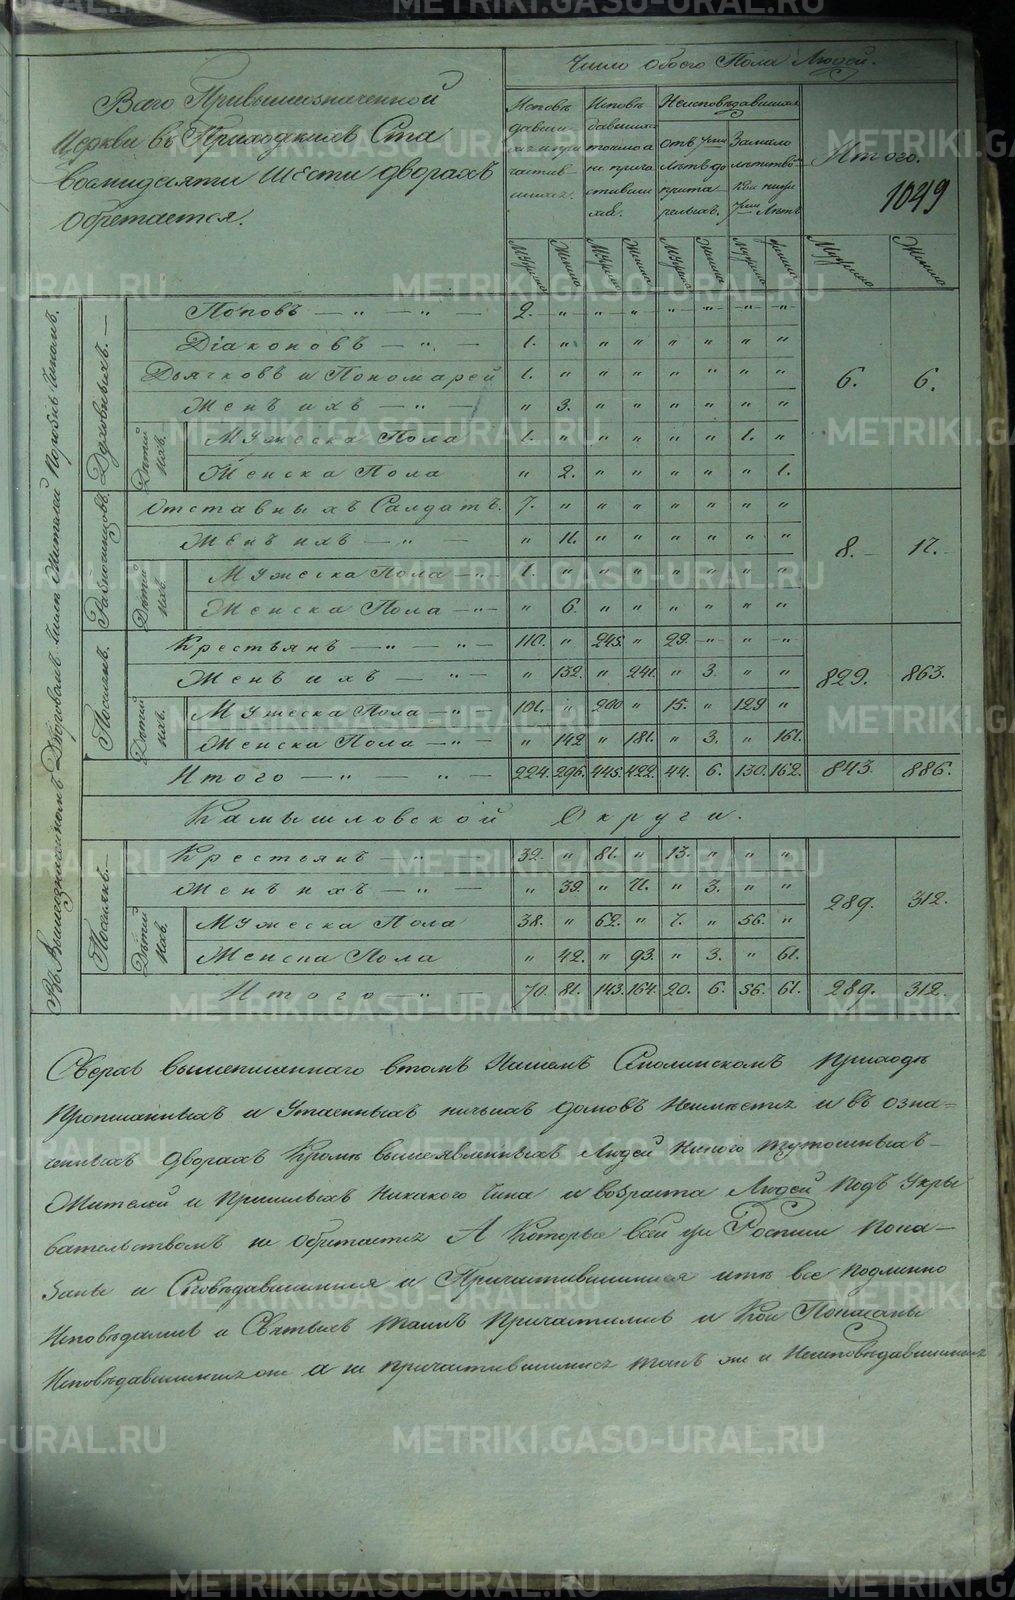 Число обоего Пола Людей.
Всего Привышеозначенной
Церкви въ Приходскихъ Ста
восмидесяти шести дворахъ
обретается.
Неисповѣдавшихся
Итого.
1049
Мужеска Женска Мужеска Женска Мужеска Женска Мужеска Женска Мужеска Женска
Духовныхъ.
Поповъ — " — " — 2. " " " " " " "
Діаконовъ — " — 1. " " " " " " "
Дьячковъ и Пономарей 1. " " " " " " " 6. 6.
Женъ ихъ — " — " 3. " " " " " "
Дѣтей ихъ.
Мужеска Пола 1. " " " " " 1. "
Женска Пола " 2. " " " " " 1.
Разночинцовъ.
Отставныхъ Салдатъ. 7. " " " " " " "
Женъ ихъ — " — " 11. " " " " " " 8. — 17. —
Дѣтей ихъ.
Мужеска Пола — " — 1. " " " " " " "
Женска Пола — " — " 6. " " " " " "
Поселянъ.
Крестьянъ — " — " — 110. " 245. " 29. " " "
Женъ ихъ — " — " 132. " 241. " 3. " " 829. 863.
Дѣтей ихъ.
Мужеска Пола — " — 101. " 200 " 15. " 129 "
Женска Пола — " — " 142 " 181. " 3. " 161.
Итого — " — " — 224. 296. 445. 422. 44. 6. 130. 162. 843. 886.
Камышловской Округи.
Поселянъ.
Крестьянъ — " 32. " 81. " 13. " " "
Женъ ихъ — " — " 39. " 71. " 3. " " 289. 312.
Дѣтей ихъ.
Мужеска Пола 38. " 62. " 7. " 56. "
Женска Пола " 42. " 93. " 3. " 61.
Итого — " — 70. 81. 143. 164. 20. 6. 56. 61. 289. 312.
Сверхъ вышеписаннаго втомъ Нашемъ приходѣ
Прописанныхъ и Утаенныхъ ничьихъ домовъ Неимѣетца и въ озна=
ченныхъ дворахъ Кромѣ вышеявленныхъ Людей Никого тутошныхъ
Жителей и пришлыхъ Никакого Чина и возраста Людей подъ Укры
вательствомъ не обретаетца А Которые всей при Росписи пока-
заны и Исповѣдавшимися и Причастившимися итѣ все подлинно
Исповѣдались и Святыхъ Таинъ Причастились и Кои Показаны
Исповѣдавшимися а не причастившимися такъ же и Неисповѣдавшимися
METRIKI.GASO-URAL.RU